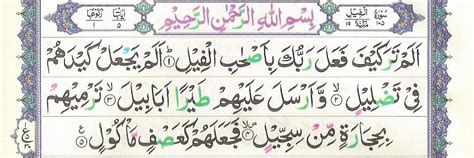 سُورَةُ الْفِيلِ
بِسْمِ اللّٰهِ الرَّحْمٰنِ الرَّحِيْمِ
اَلَمْ تَرَ كَيْفَ فَعَلَ رَبُّكَ بِاَصْحٰبِ الْفِيْلِ ۝١ اَلَمْ يَجْعَلْ كَيْدَهُمْ
فِيْ تَضْلِيْلٍ ۝٢ وَّاَرْسَلَ عَلَيْهِمْ طَيْرًا اَبَابِيْلَ ۝٣ تَرْمِيْهِمْ
بِحِجَارَةٍ مِّنْ سِجِّيْلٍ ۝٤ فَجَعَلَهُمْ كَعَصْفٍ مَّاْكُوْلٍ ۝٥